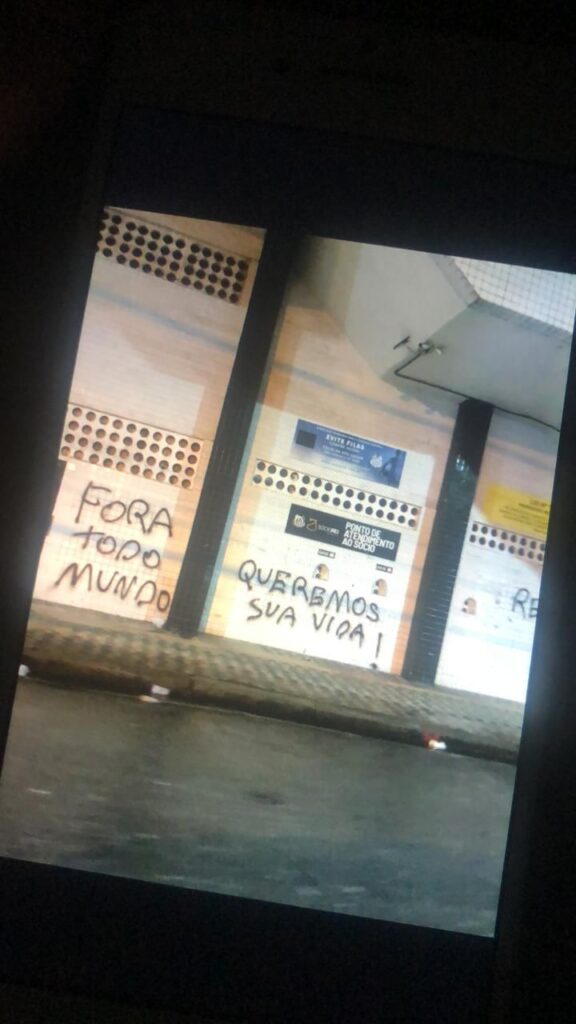 FORA
TODO
MUNDO
EVITE FILAS
PONTO DE
ATENDIMENTO
AO SÓCIO
QUEREMOS
SUA VIDA!
RE